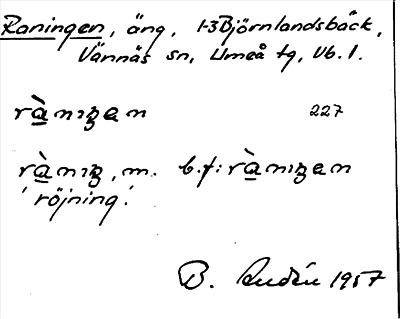 Raningen, äng, 1-3 Björnlandsbäck,
Vännäs sn, Umeå tg, Vb. l.
rànıŋen 227
rànıŋ, m. b.f: rànıŋen
'röjning'.
B. 1957